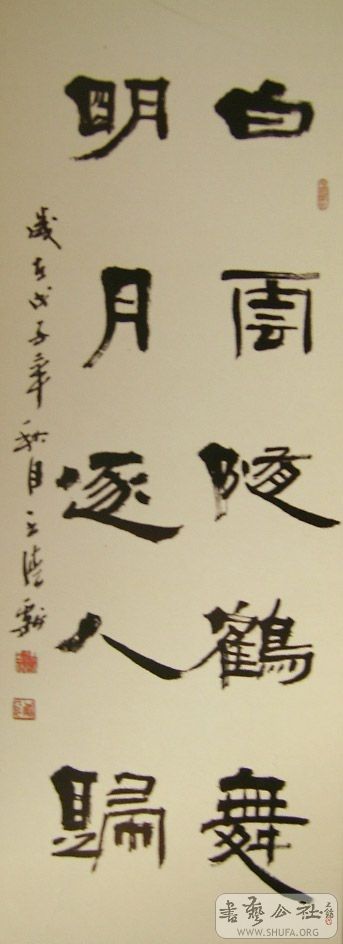 白雲随鶴舞
明月逐人歸
歲在戊子年秋月
書藝公社
WWW.SHUFA.ORG